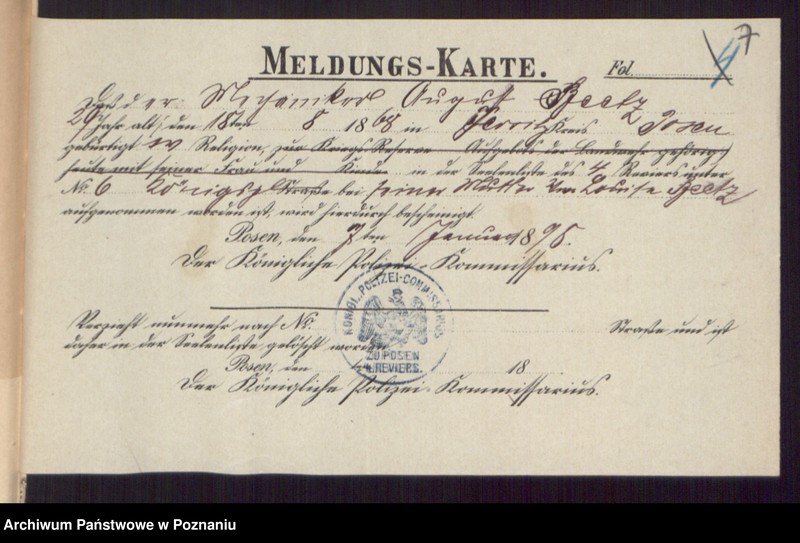 7
4
MELDUNGS-KARTE.
Fol.
Daß der Mechaniker August Beetz
Jahr alt, den 18ten 8 1868 in Jersitz Kreis Posen
gebürtigt ev. Religion, zur Kriegs-Reserve Aufgebot der Landwehr gehörig,
heute mit seiner Frau und Kinder in der Seelenliste des 4 Reviers unter
No. 6 Königspl. Straße bei seiner Mutter Louise Beetz
aufgenommen worden ist, wird hierdurch bescheinigt.
Posen, den 7ten Januar 1895.
Der Königliche Polizei-Kommissarius.
KÖNIGL. POLIZEI-COMMISSARIUS
ZU POSEN
REVIERS.
Verzieht nunmehr nach No. Straße und ist
daher in der Seelenliste gelöscht worden.
Posen, den 18
Der Königliche Polizei-Kommissarius.
Archiwum Państwowe w Poznaniu